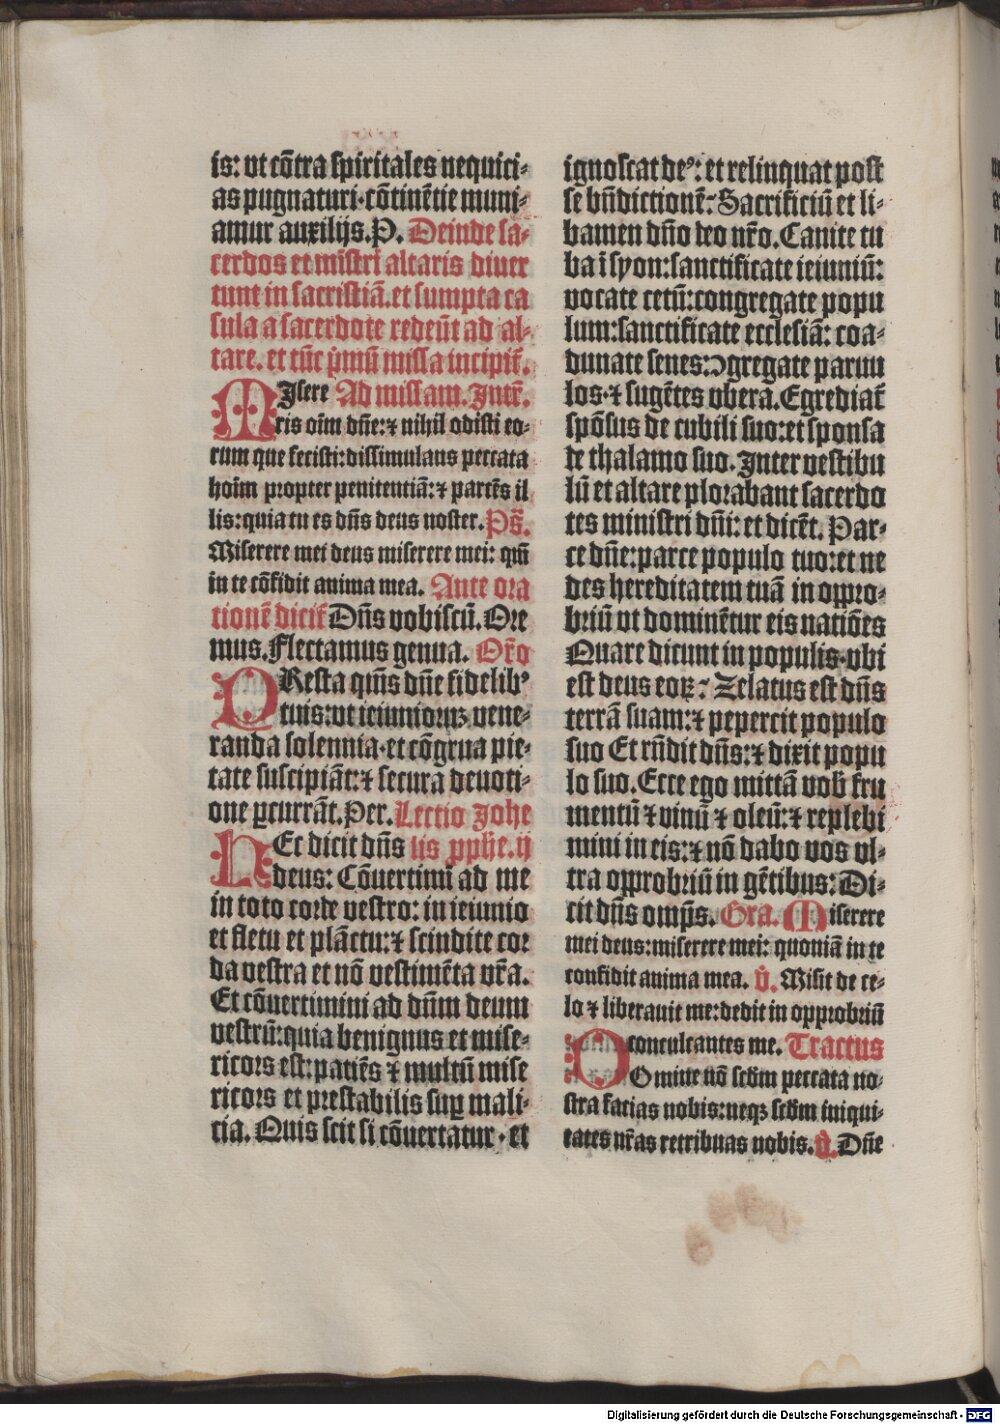 is: ut cōtra spiritales nequici-
as pugnaturi·cōtinētie muni-
amur auxilijs.P. Deinde sa-
cerdos et mīstri altaris diuer
tunt in sacristiā.et sumpta ca
sula a sacerdote redeūt ad al-
tare. et tūc p̄mū missa incipit̄.
MIsere Ad missam. Intr̄.
ris oīm dn̄e:⁊ nihil odisti eo-
rum que fecisti:dissimulans peccata
hoīm propter penitentiā:⁊ parcēs il
lis:quia tu es dn̄s deus noster. Ps̄.
Miserere mei deus miserere mei: qm̄
in te cōfidit anima mea. Ante ora
tionē dicit̄ Dn̄s vobiscū. Ore
mus. Flectamus genua. Or̄o
PResta qm̄s dn̄e fidelibꝰ
tuis:vt ieiuniorꝝ vene-
randa solennia·et cōgrua pie-
tate suscipiāt:⁊ secura deuoti-
one ꝑcurrāt.Per. Lectio Johe
HEc dicit dn̄s lis ꝓphe.ij
deus: Cōuertimī ad me
in toto corde vestro: in ieiunio
et fletu et plāctu:⁊ scindite cor
da vestra et nō vestimēta vr̄a.
Et cōuertimini ad dn̄m deum
vestrū:quia benignus et mise-
ricors est:patiēs ⁊ multū mise
ricors et prestabilis suꝑ mali-
cia. Quis scit si cōuertatur·et
ignoscat deꝰ: et relinquat post
se bn̄dictionē: Sacrificiū et li-
bamen dn̄o deo nr̄o. Canite tu
ba ī syon:sanctificate ieiuniū:
vocate cetū:congregate popu
lum:sanctificate ecclesiā: coa-
dunate senes:ꝯgregate paruu
los·⁊ sugētes vbera. Egrediat̄
spōsus de cubili suo:et sponsa
de thalamo suo. Inter vestibu
lū et altare plorabant sacerdo
tes ministri dn̄i: et dicēt. Par-
ce dn̄e:parce populo tuo:et ne
des hereditatem tuā in oppro-
briū vt dominētur eis natiōes
Quare dicunt in populis·vbi
est deus eoꝝ: Zelatus est dn̄s
terrā suam:⁊ pepercit populo
suo Et rn̄dit dn̄s:⁊ dixit popu
lo suo. Ecce ego mittā vob̄ fru
mentū ⁊ vinū ⁊ oleū:⁊ replebi
mini in eis:⁊ nō dabo vos vl-
tra opprobriū in gētibus: Di-
cit dn̄s omp̄s. Gra. Miserere
mei deus:miserere mei: quoniā in te
confidit anima mea. ℣. Misit de ce-
lo ⁊ liberauit me:dedit in opprobriū
conculcantes me. Tractus
DOmine nō scd̄m peccata no-
stra facias nobis:neqꝫ scd̄m iniqui-
tates nr̄as retribuas nobis. ℣. Dn̄e
Digitalisierung gefördert durch die Deutsche Forschungsgemeinschaft - DFG